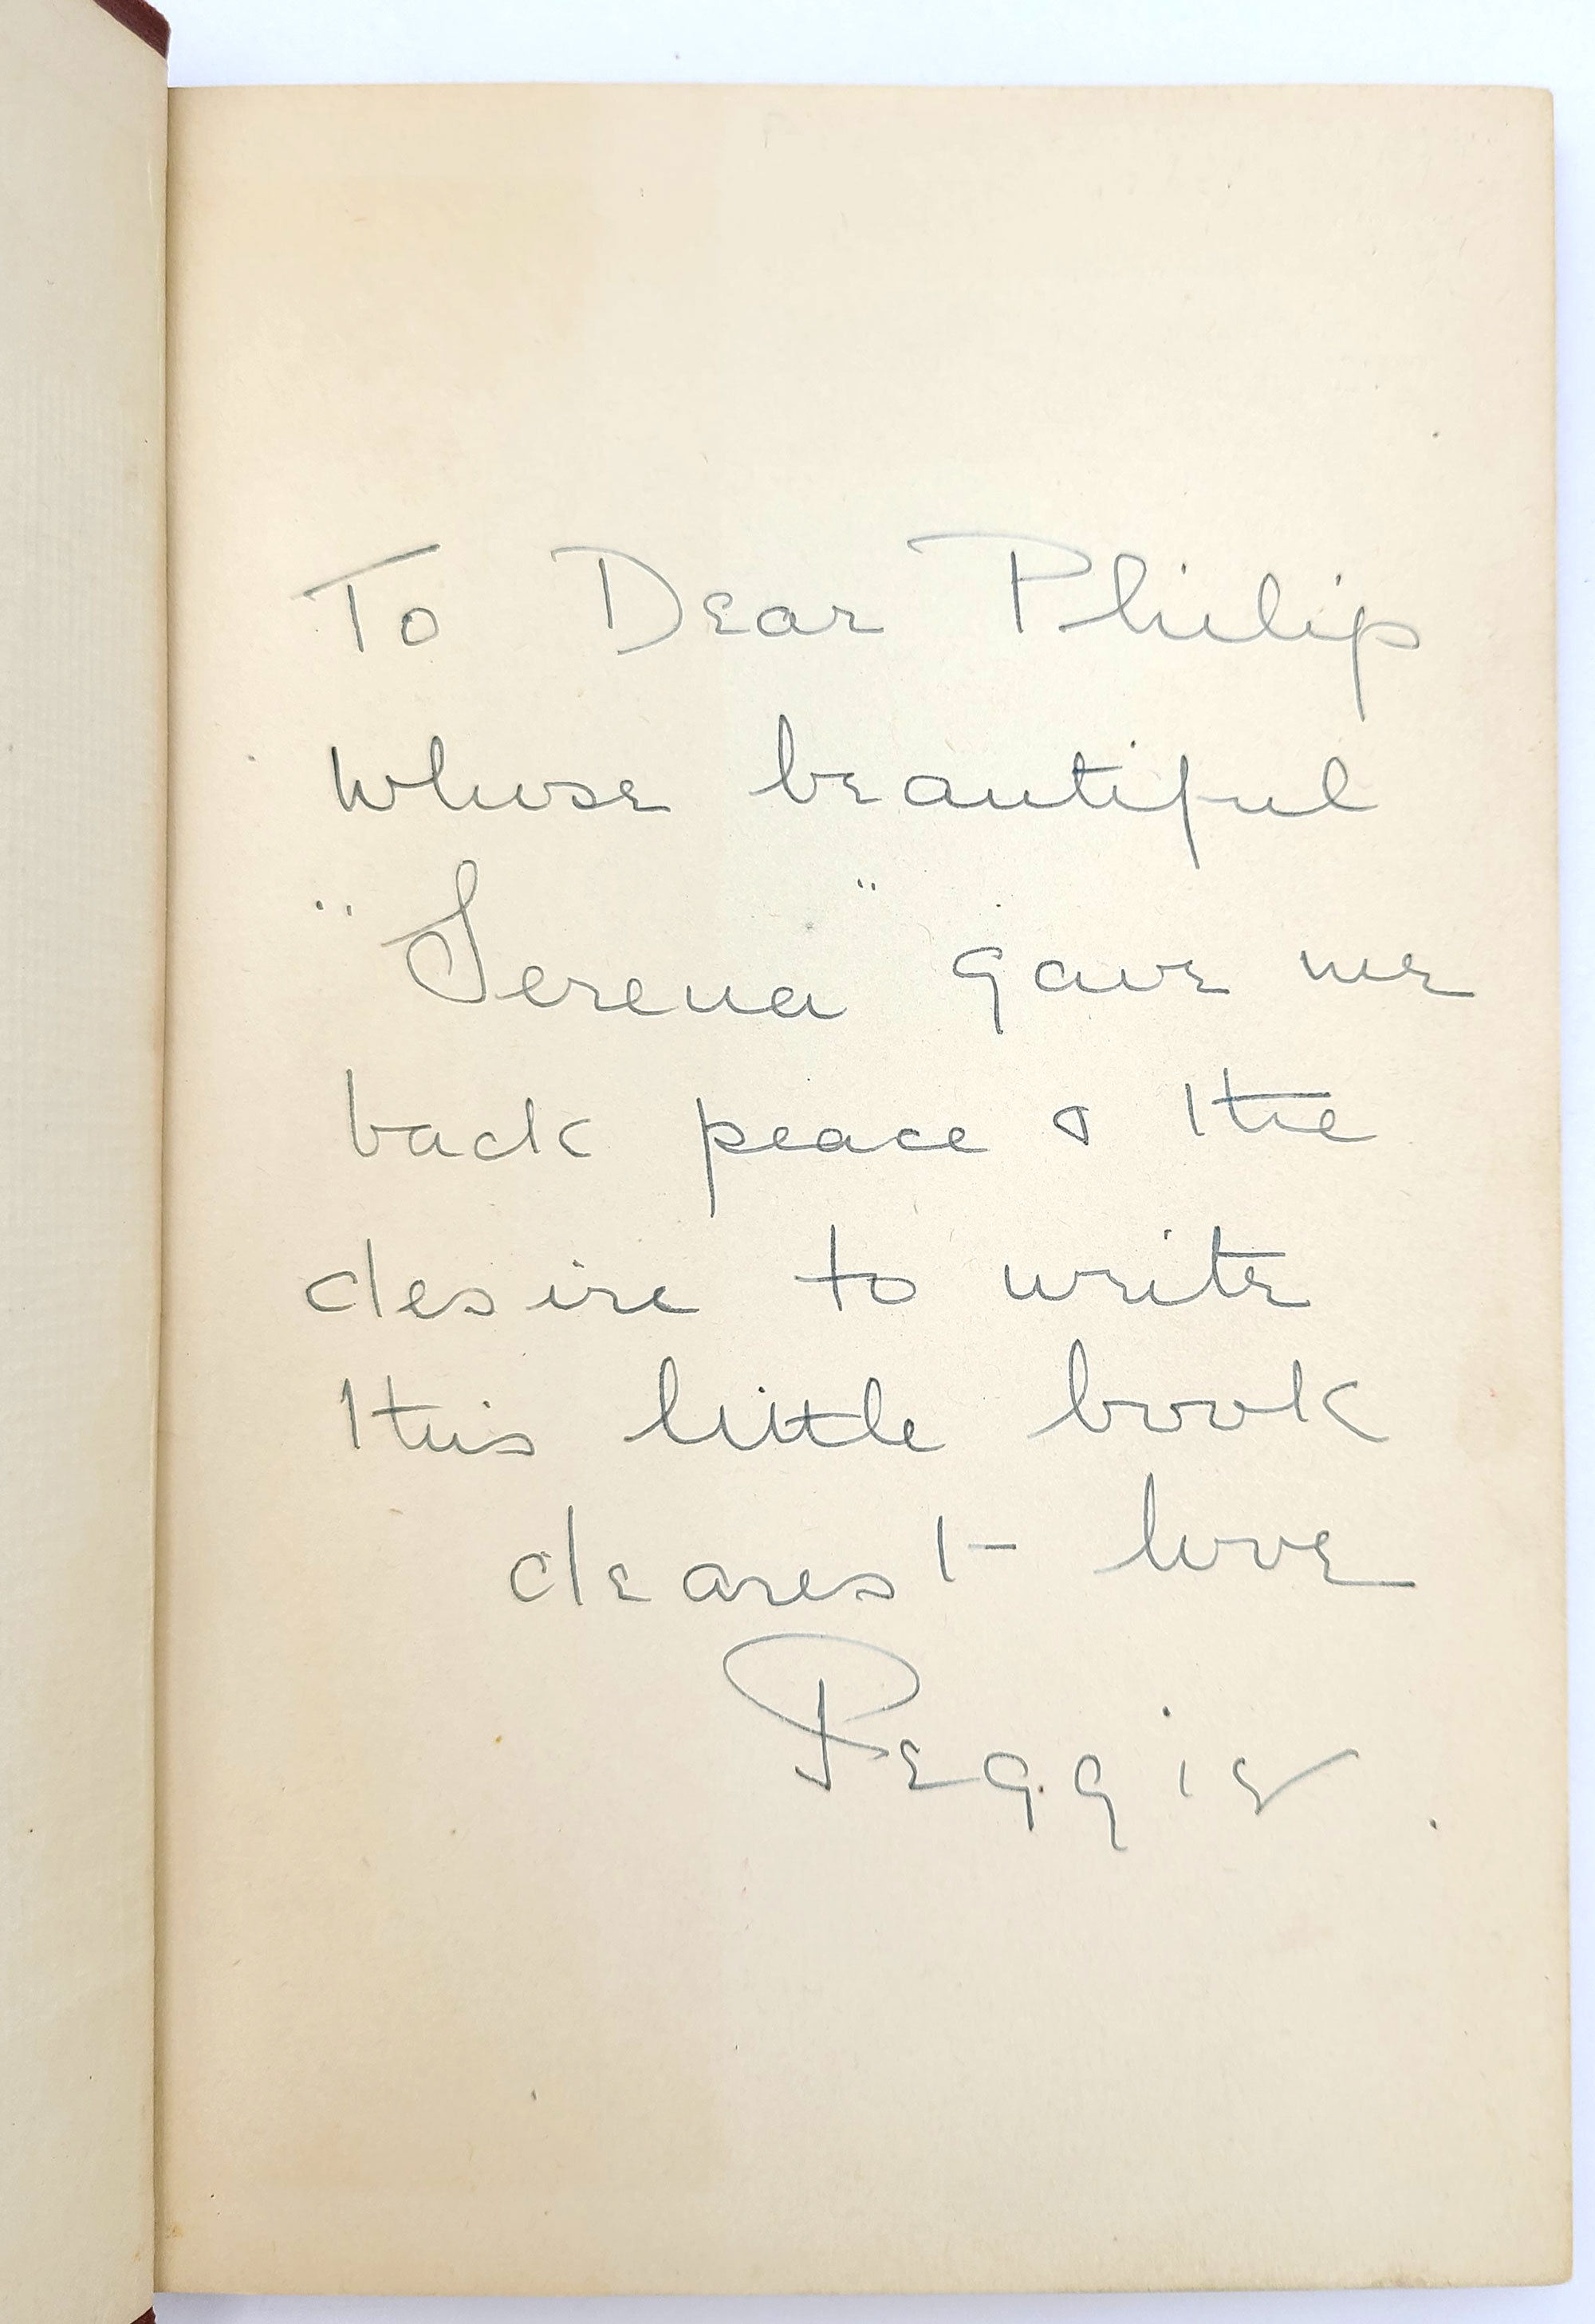 To Dear Philip
whose beautiful
"Serena" gave me
back peace & the
desire to write
this little book
dearest love
Peggie